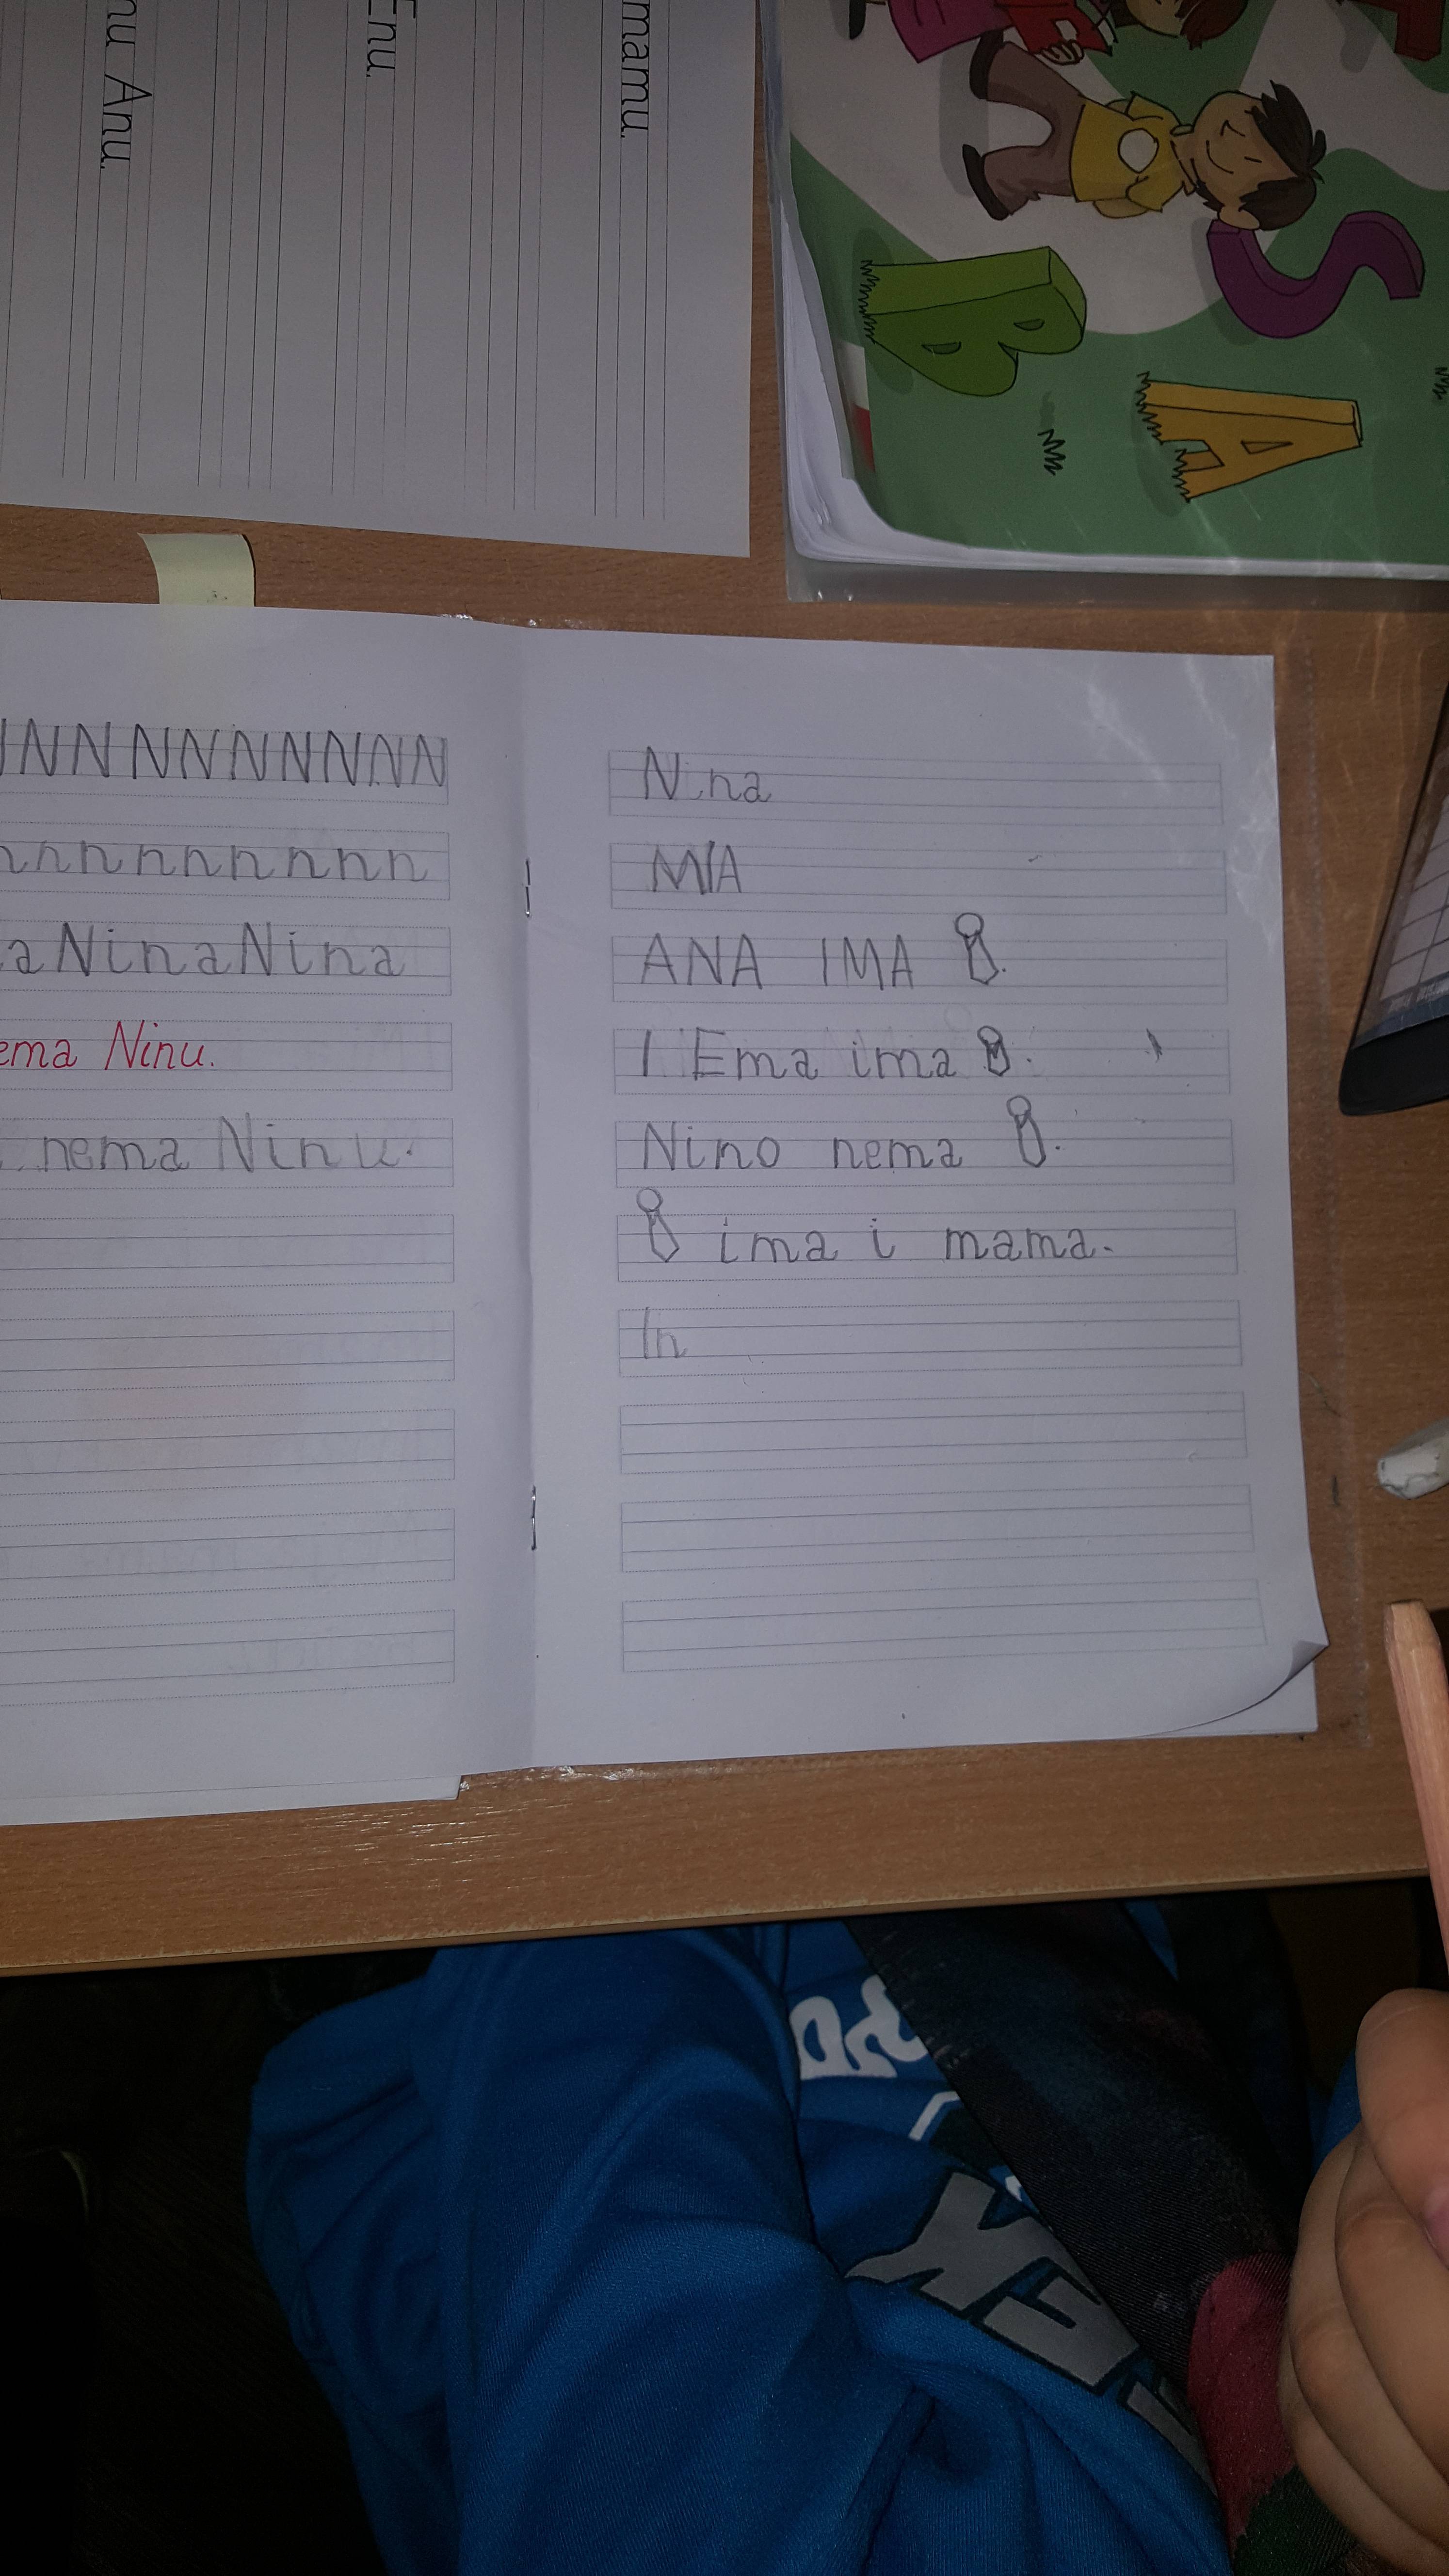 mamu.
Enu.
nu Anu.
B
S
A
NNNNNNNNNN
nnnnnnnnn
a Nina Nina
ema Ninu.
nema Ninu.
Nina
MIA
ANA IMA
I Ema ima
Nino nema
ima i mama.
In